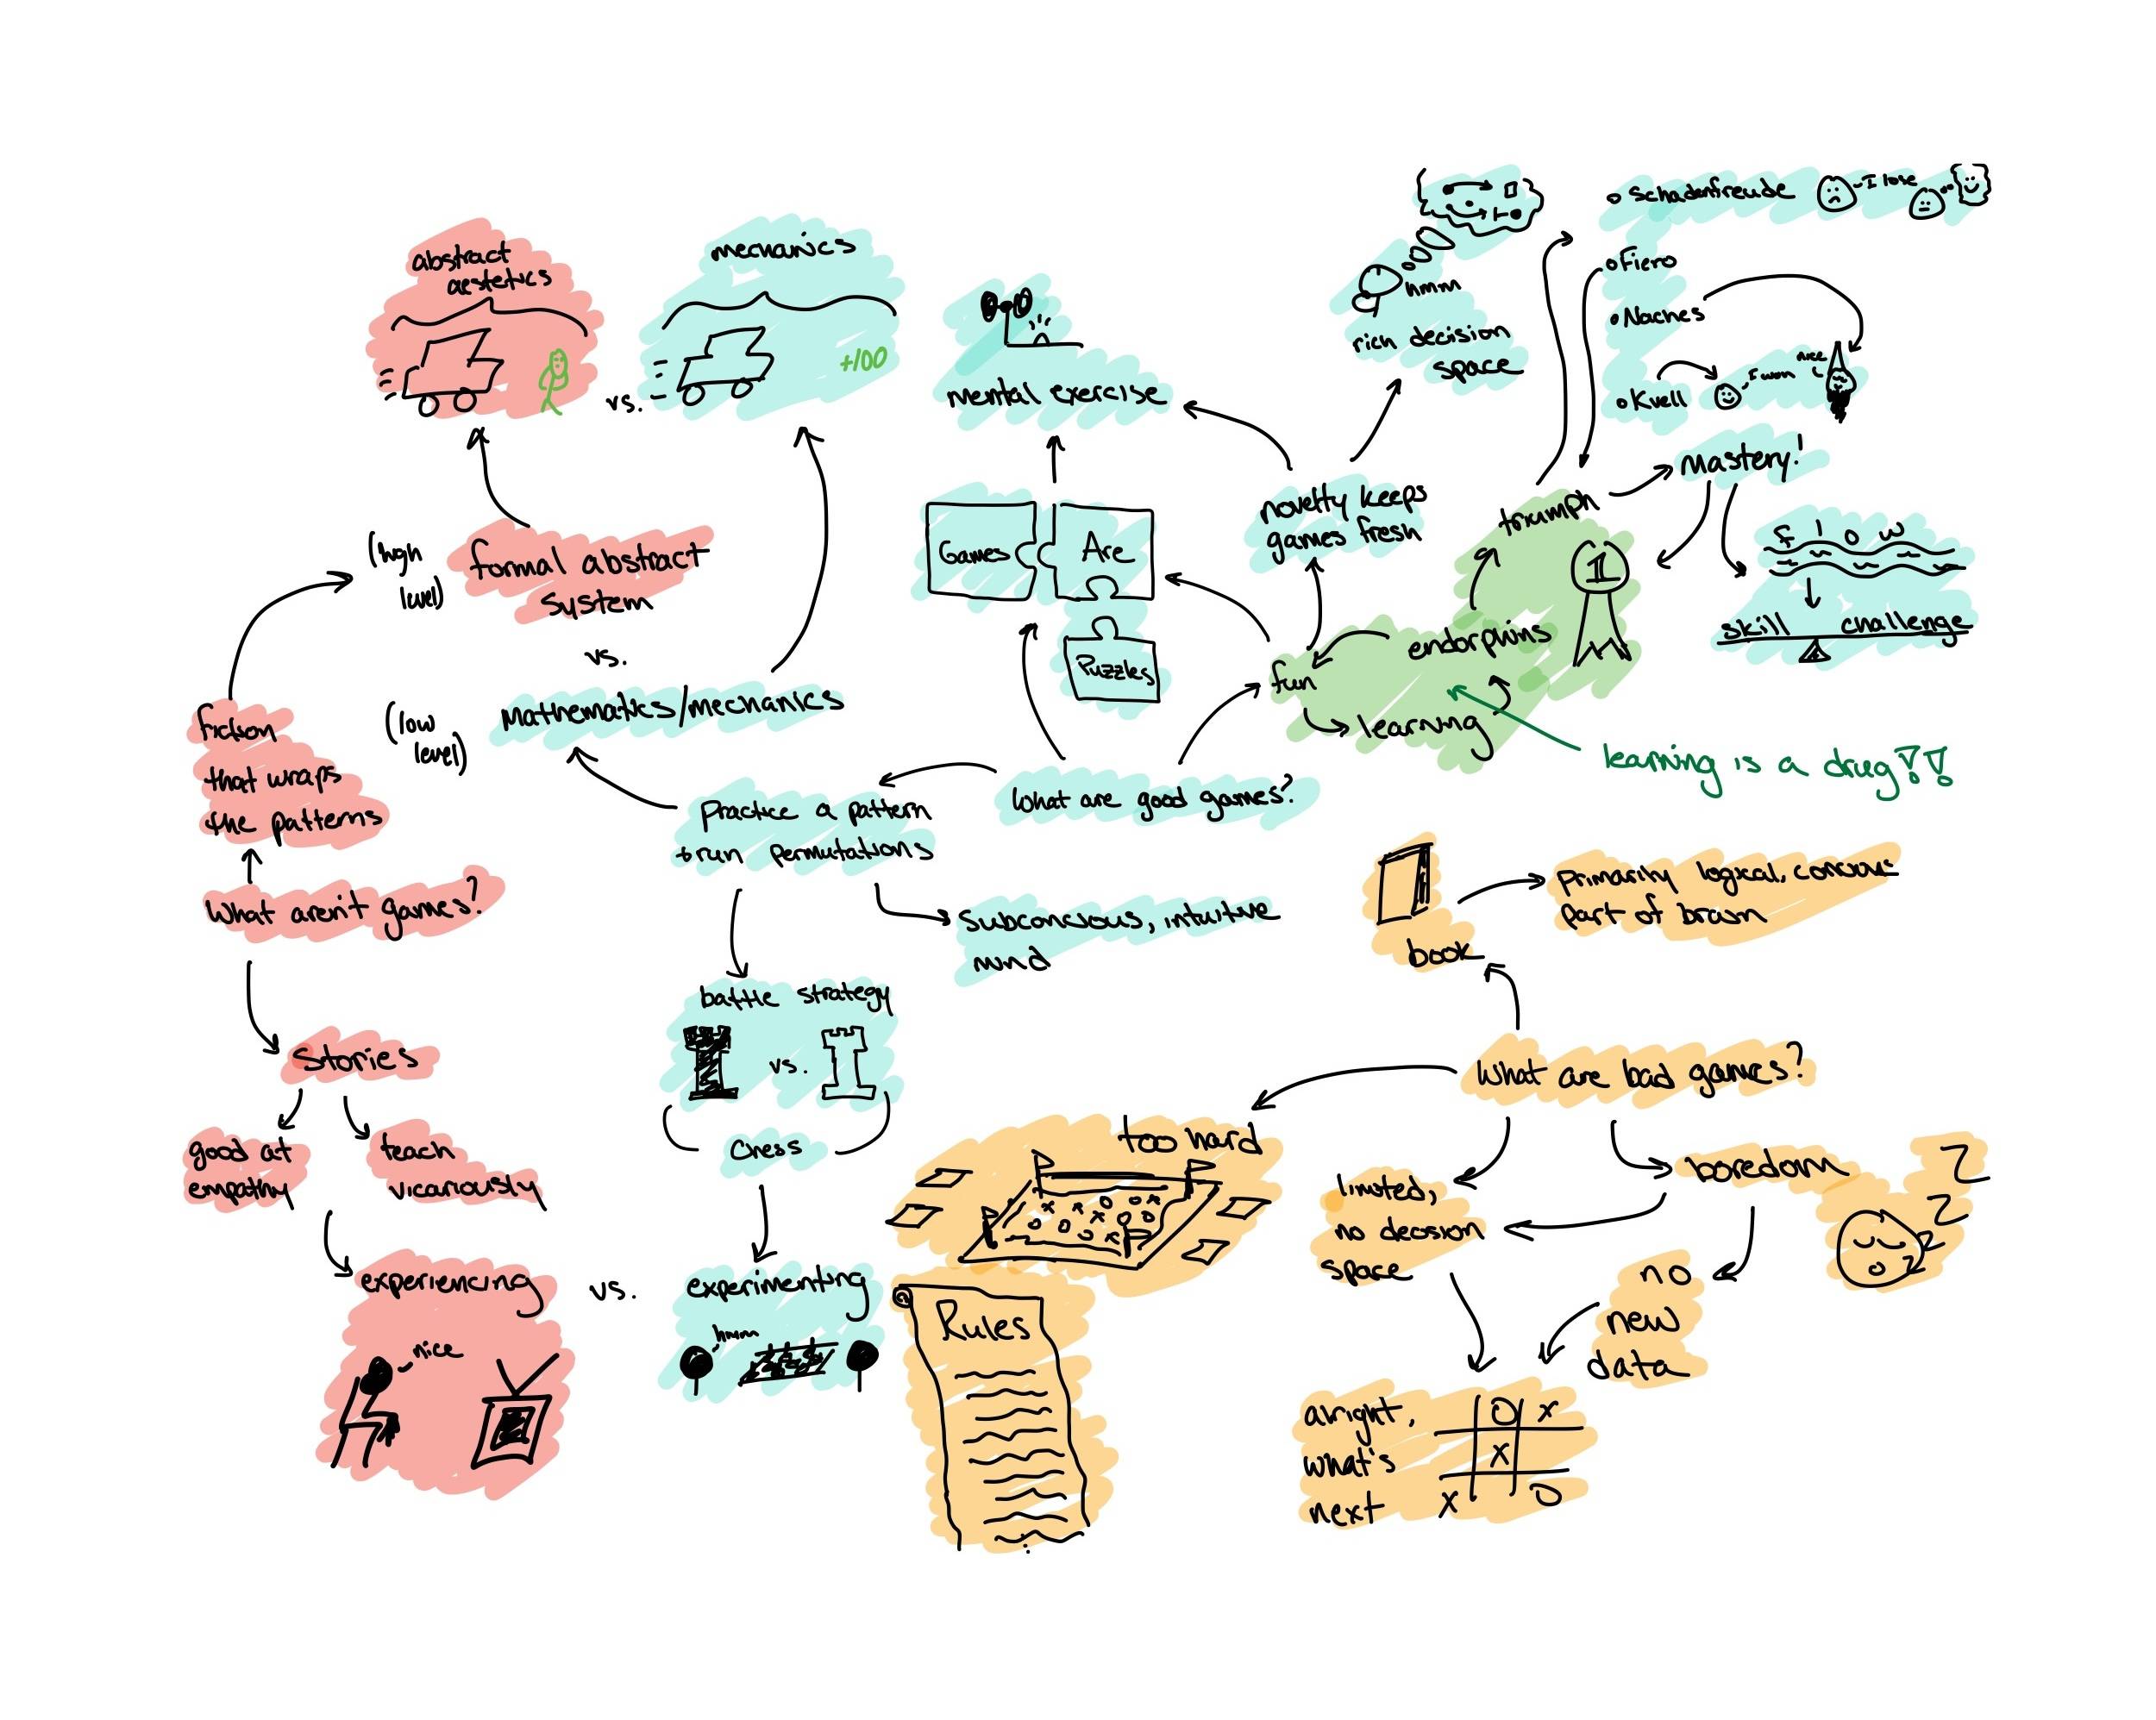 abstract
aestetics
vs.
mechanics
+100
mental exercise
hmm
rich decision
space
Schadenfreude
I lose
Fiero
Naches
Kvell
I won
nice
Mastery!
flow
skill challenge
triumph
1
endorphins
fun
learning
learning is a drug!!
novelty keeps
games fresh
Games
Are
Puzzles
(high
level)
formal abstract
system
vs.
(low
level)
Mathematics/mechanics
fiction
that wraps
the patterns
What aren't games?
Stories
good at
empathy
teach
vicariously
experiencing
nice
vs.
experimenting
hmm
What are good games?
Practice a pattern
+ run permutations
subconcious, intuitive
mind
battle strategy
vs.
Chess
book
primarily logical, concious
part of brain
What are bad games?
too hard
Rules
limited,
no decision
space
boredom
Z
Z
Z
no
new
data
alright,
what's
next
O X
X
X O